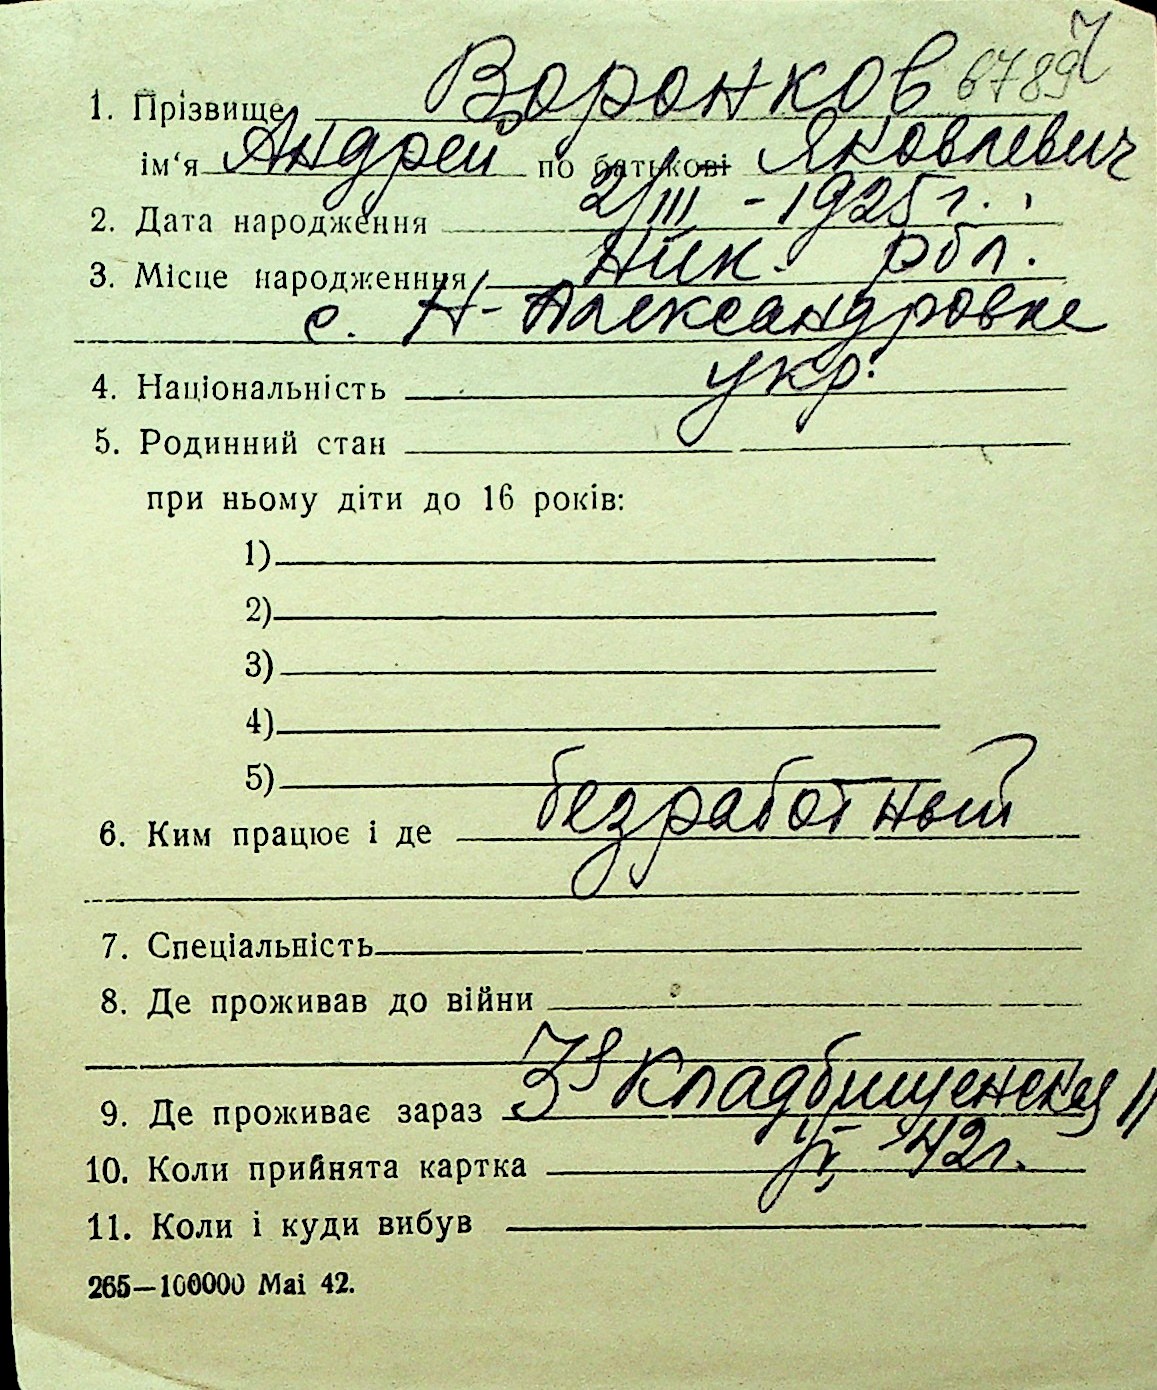 1. Прізвище Воронков 67894
ім'я Андрей по батькові Яковлевич
2. Дата народження 2/III - 1925 г.
3. Місце народженння Ник. обл.
с. Н-Александровке
4. Національність укр.
5. Родинний стан
при ньому діти до 16 років:
1)
2)
3)
4)
5)
6. Ким працює і де безработный
7. Спеціальність
8. Де проживав до війни
9. Де проживає зараз 3я Кладбищенская 11
10. Коли прийнята картка 42г.
11. Коли і куди вибув
265—100000 Mai 42.